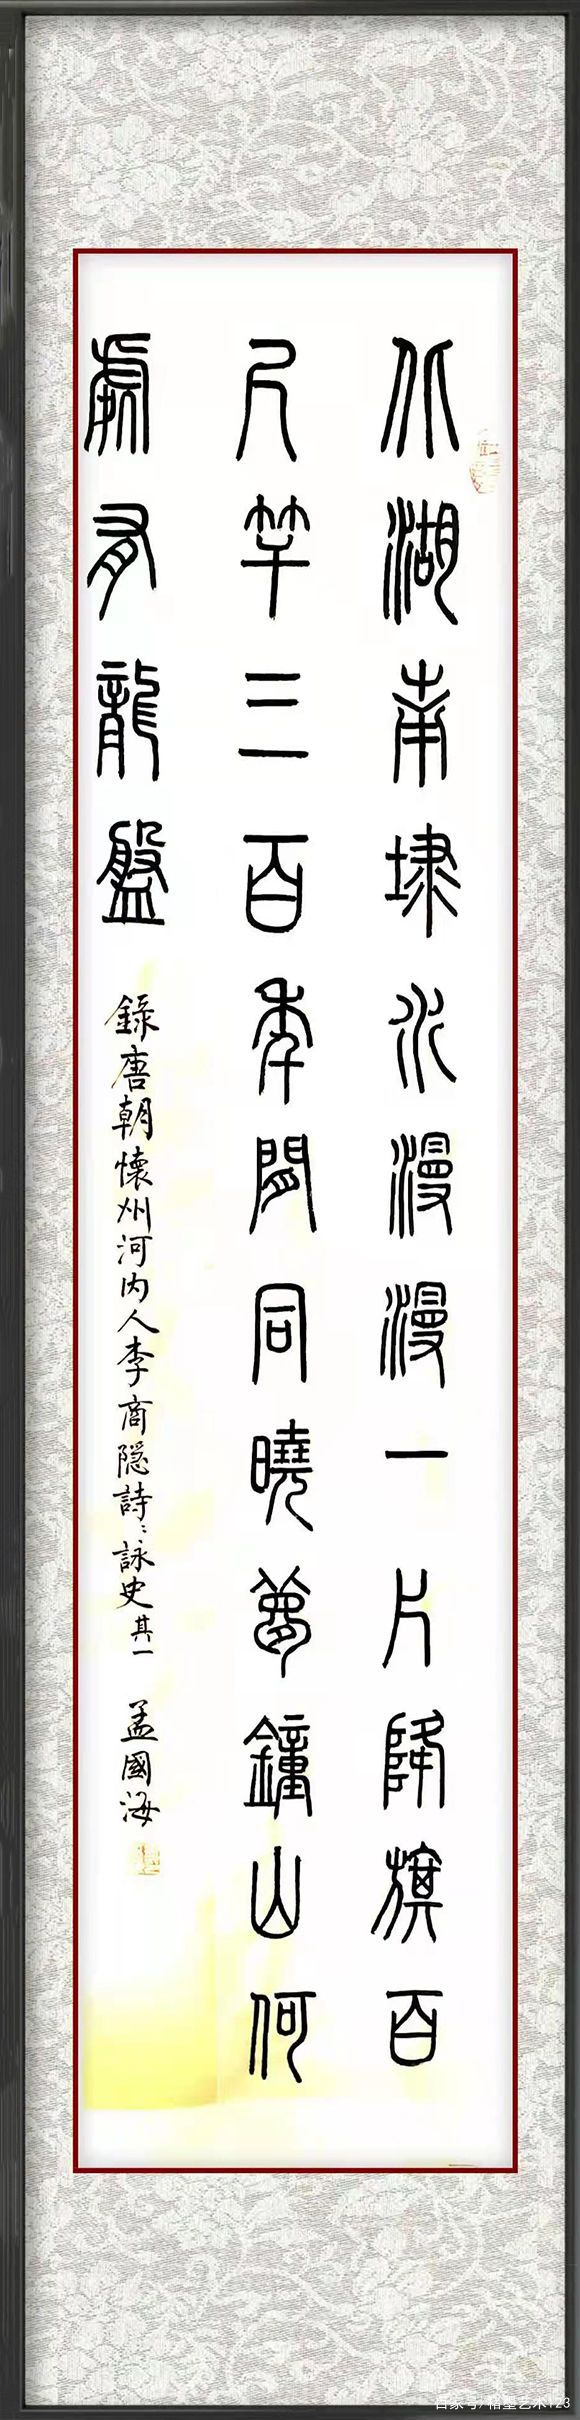 北湖南埭水漫漫一片降旗百
尺竿三百年間同曉夢鐘山何
處有龍盤
錄唐朝懷州河内人李商隱詩:詠史其一
孟國海
百家号/格墨艺术123